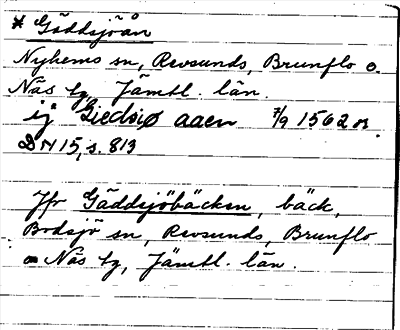 * Gäddsjöån
Nyhems sn, Revsunds, Brunflo o.
Näs tg, Jämtl. län.
ij Giedsiø aaen 7/9 1562 or.
DN 15, s. 813
Jfr Gäddsjöbäcken, bäck,
Bodsjö sn, Revsunds, Brunflo
o Näs tg, Jämtl. län.